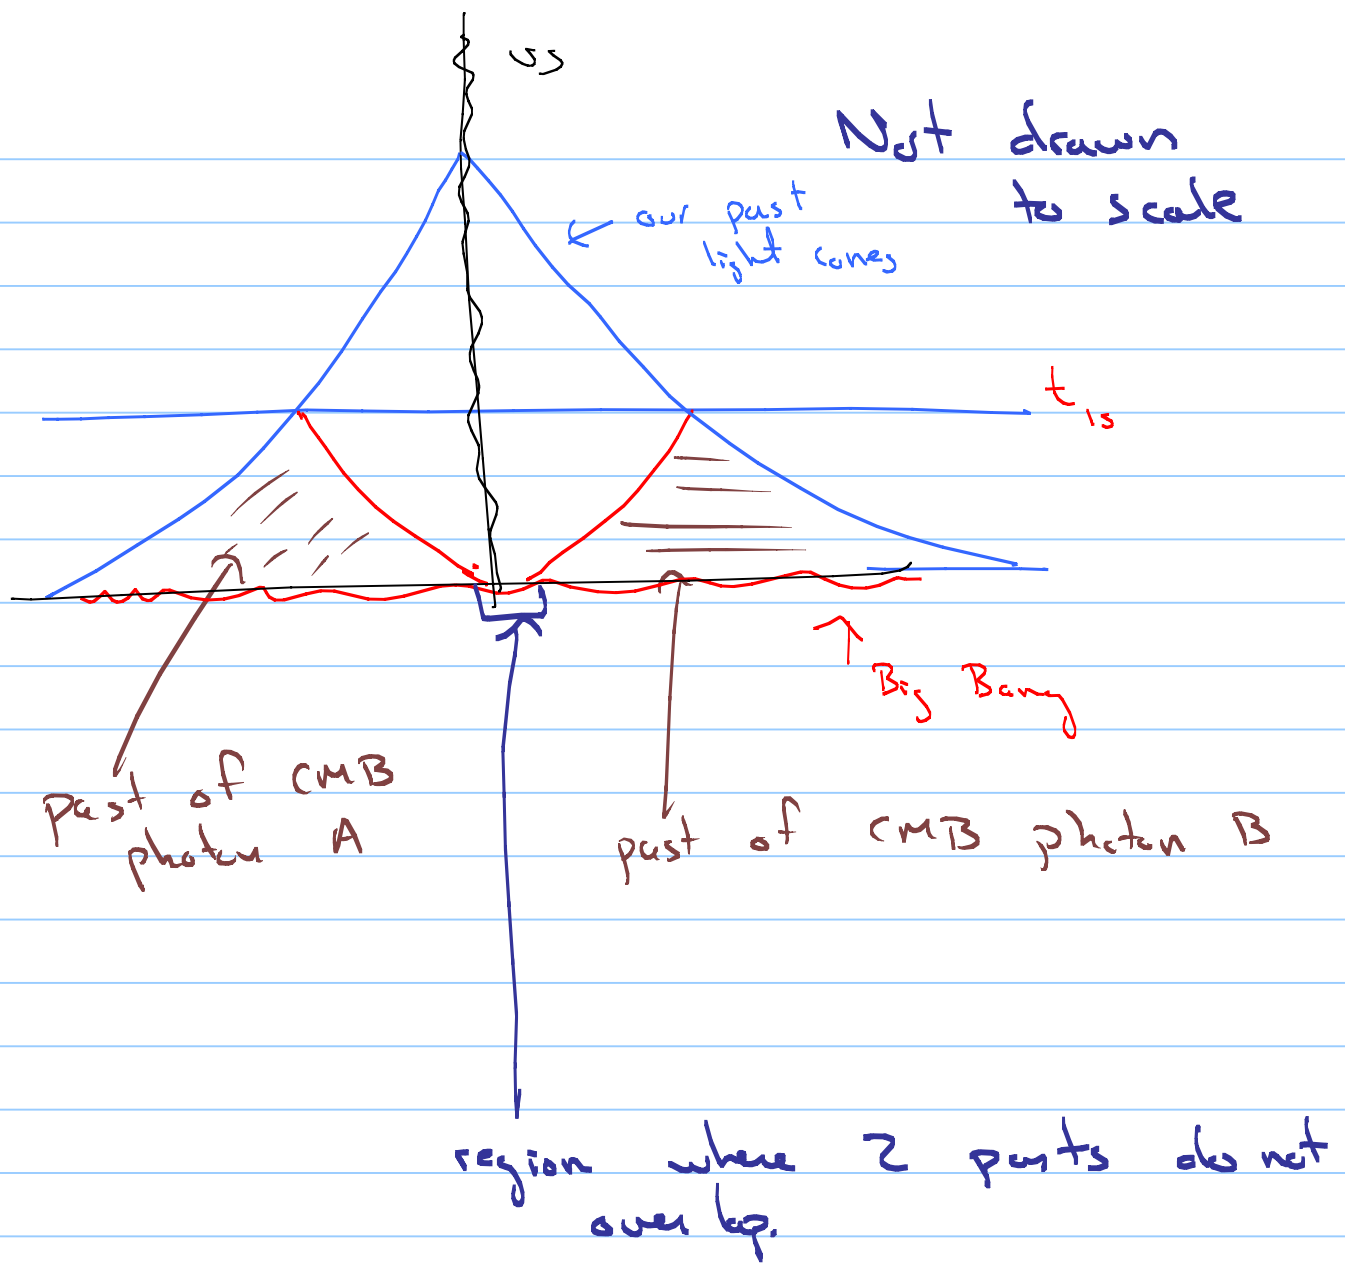 us
Not drawn
to scale
our past
light cones
t ls
Big Bang
past of CMB
photon A
past of CMB photon B
region where 2 pasts do not
overlap.